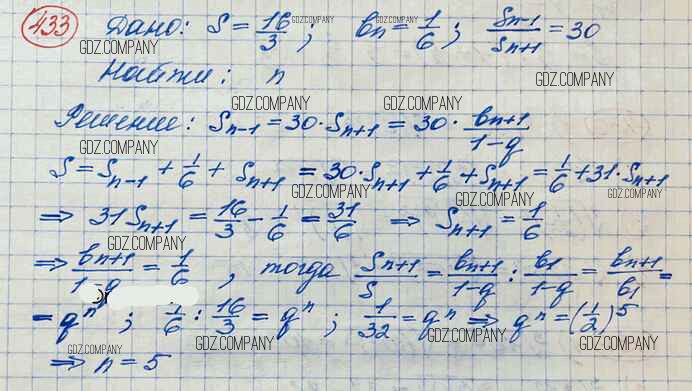 433 Дано: S = 16/3; bn = 1/6; Sn-1/Sn+1 = 30
GDZ.COMPANY GDZ.COMPANY GDZ.COMPANY
Найти: n
GDZ.COMPANY
GDZ.COMPANY GDZ.COMPANY
Решение: Sn-1 = 30·Sn+1 = 30·bn+1/1-q
GDZ.COMPANY
S = Sn-1 + 1/6 + Sn+1 = 30·Sn+1 + 1/6 + Sn+1 = 1/6 + 31·Sn+1
GDZ.COMPANY GDZ.COMPANY GDZ.COMPANY
⇒ 31Sn+1 = 16/3 - 1/6 = 31/6 ⇒ Sn+1 = 1/6
GDZ.COMPANY GDZ.COMPANY
⇒ bn+1/1-q = 1/6, тогда Sn+1/S = bn+1/1-q : b1/1-q = bn+1/b1 =
GDZ.COMPANY GDZ.COMPANY
= qⁿ; 1/6 : 16/3 = qⁿ; 1/32 = qⁿ ⇒ qⁿ = (1/2)⁵
GDZ.COMPANY GDZ.COMPANY GDZ.COMPANY GDZ.COMPANY
⇒ n = 5